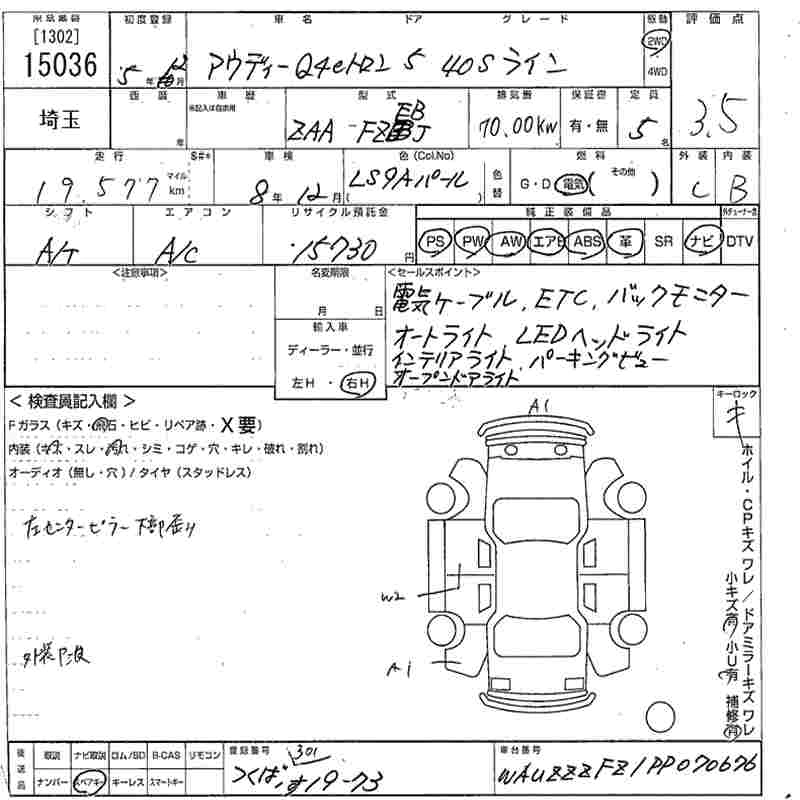 [1302]
15036
初度登録
5年12月
車名 ドア グレード
アウディーQ4eトロン 5 40S ライン
駆動
2WD
4WD
評価点
3.5
埼玉
西暦
年
車歴
※記入は自家用
型式
ZAA-FZEBJ
排気量
70.00KW
保証書
有・無
定員
5名
走行 S#*
19,577 マイル km
車検
8年12月
色 (Col.No)
LS9Aパール
色替
燃料
G・D 電気 ( その他 )
外装
C
内装
B
シフト
A/T
エアコン
A/C
リサイクル預託金
15730円
純正装備品
PS PW AW エアB ABS 革 SR ナビ
DTV
<注意事項>
名変期限
月 日
輸入車
ディーラー・並行
左H・右H
<セールスポイント>
電気ケーブル, ETC, バックモニター
オートライト LEDヘッドライト
インテリアライト, パーキングビュー
オープンドアライト
< 検査員記入欄 >
Fガラス (キズ・飛石・ヒビ・リペア跡・X要)
内装 (キズ・スレ・汚れ・シミ・コゲ・穴・キレ・破れ・割れ)
オーディオ (無し・穴) / タイヤ (スタッドレス)
左センターピラー下部歪り
A1
W2
A1
キーロック
キ
ホイル・CPキズ ワレ / ドアミラーキズ ワレ
小キズ有 小U有 補修有
後送品
取説 ナビ取説 ロム/BD B-CAS リモコン
ナンバー スペアキー キーレス スマートキー
登録番号
つくば 301 す19-73
車台番号
WAUZZZFZ1PP070676